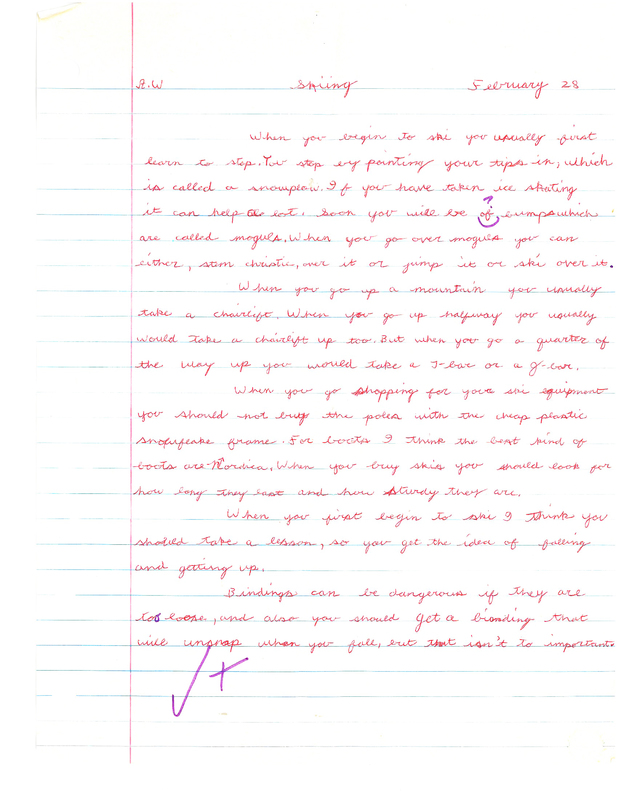 R.W Skiing February 28
When you begin to ski you usually first
learn to stop. You stop by pointing your tips in, which
is called a snowplow. If you have taken ice skating
it can help a lot. Soon you will be of ? bumps which
are called moguls. When you go over moguls you can
either, stem christie, over it or jump it or ski over it.
When you go up a mountain you usually
take a chairlift. When you go up halfway you usually
would take a chairlift up too. But when you go a quarter of
the way up you would take a T-bar or a J-bar.
When you go shopping for your ski equipment
you should not buy the poles with the cheap plastic
snowflake frame. For boots I think the best kind of
boots are Nordica. When you buy skis you should look for
how long they last and how sturdy they are.
When you first begin to ski I think you
should take a lesson, so you get the idea of falling
and getting up.
Bindings can be dangerous if they are
too loose, and also you should get a binding that
will unsnap when you fall, but that isn't to important.
✓+